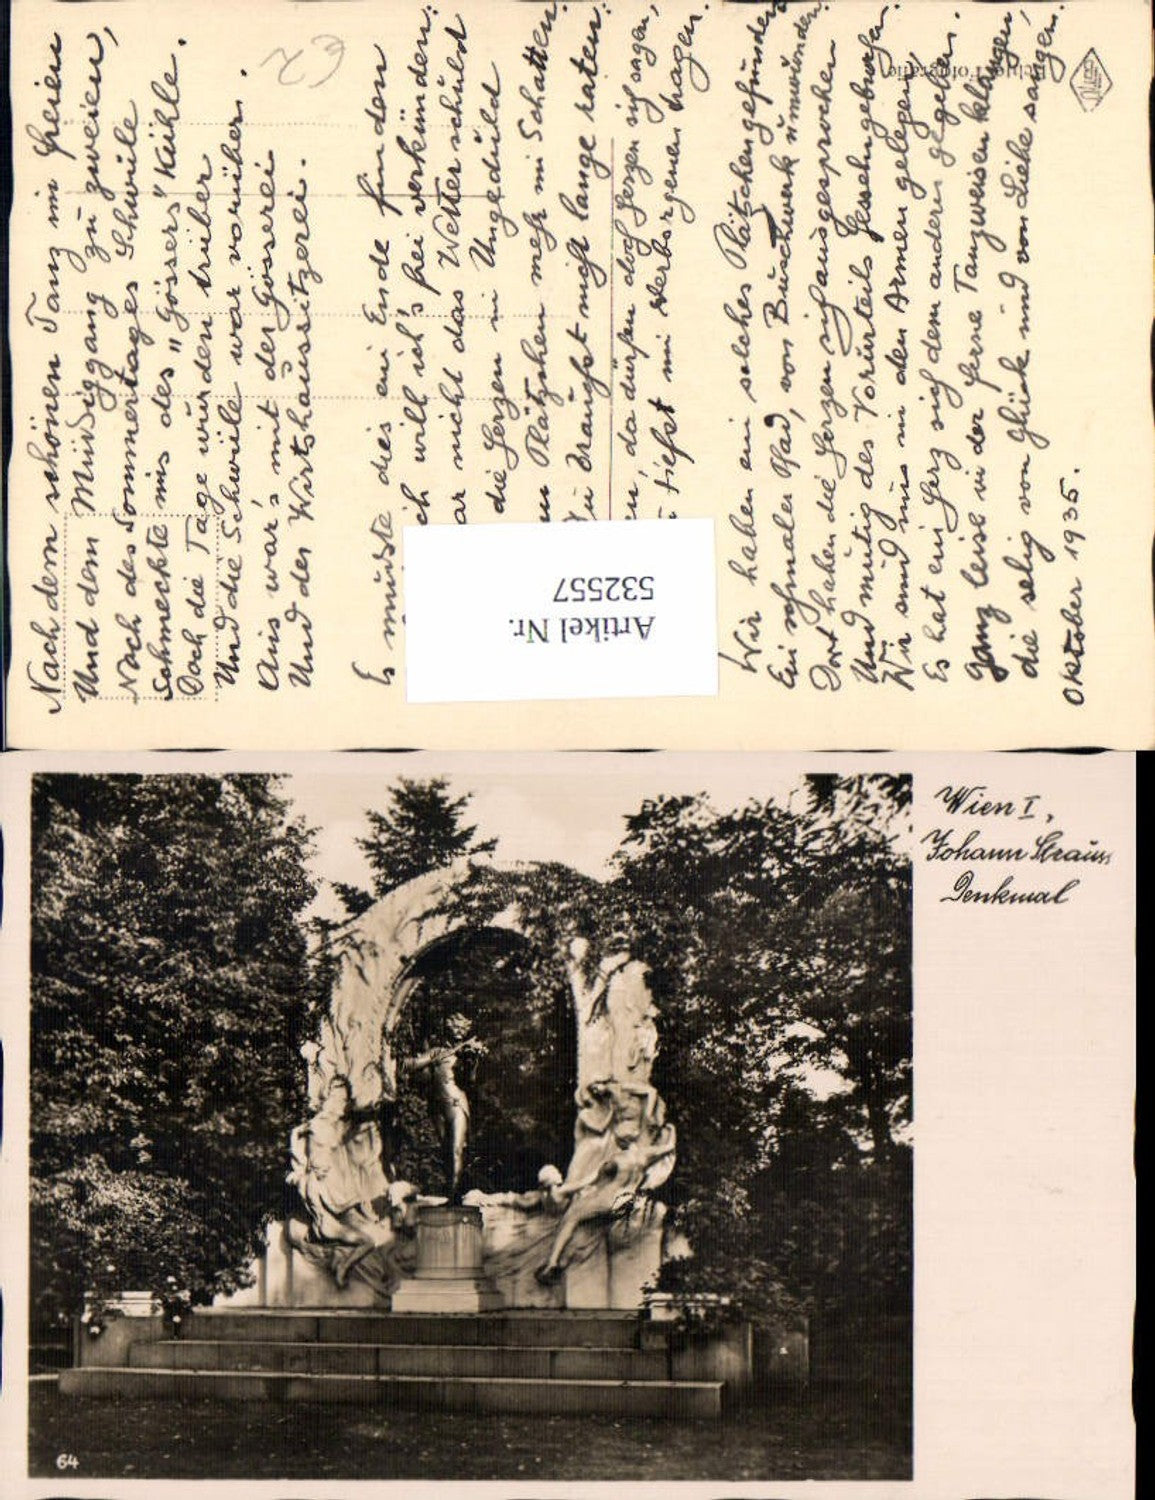 Nach dem schönen Tanz im Freien
Und dem Müßiggang zu zweien,
Nach des Sommertages Schwüle
Schmeckte uns des "Gössers" Kühle.
Doch die Tage wurden trüber
Und die Schwüle war vorüber.
Aus war's mit der Gösserei
Und der Wirtshaussitzerei.
Es mußte dies ein Ende finden
ich will ich's frei verkünden:
ar nicht das Wetter schuld
die Herzen in Ungeduld
Plätzchen mehr im Schatten.
Du brauchst nicht lange raten:
en, da dürfen doch Herzen sich sagen,
tiefst im Verborgenen tragen.
Wir haben ein solches Plätzchen gefunden
Ein schmaler Pfad, von Buschwerk umwunden.
Dort haben die Herzen sich ausgesprochen
Und mutig des Vorurteils Fesseln gebrochen.
Wir sind uns in den Armen gelegen,
Es hat ein Herz sich dem anderen gegeben.
Ganz leise in der Ferne Tanzweisen klangen,
die selig von Glück und von Liebe sangen.
Oktober 1935.
Artikel Nr.
532557
Wien I,
Johann Strauss
Denkmal
64